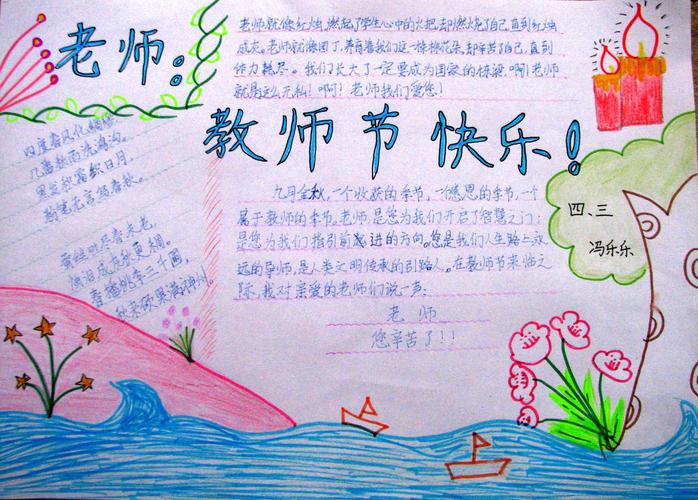 老师:
老师就像红烛,燃起了学生心中的火把,却燃烧了自己直到红烛
成灰。老师就像园丁,养育着我们这一棵棵花朵,却辛苦了自己,直到
体力耗尽。我们长大了一定要成为国家的栋梁。啊!老师
就是这么无私!啊!老师我们爱您!
教师节快乐!
四度春风化绸缪
几番秋雨洗鸿沟。
黑发积霜织日月,
粉笔无言写春秋。
蚕丝吐尽春未老,
烛泪成灰秋更稠。
春播桃李三千圃,
秋来硕果满神州。
九月金秋,一个收获的季节,一个感恩的季节,一个
属于教师的季节。老师,是您为我们开启了智慧之门;
是您为我们指引前进的方向。您是我们人生路上永
远的导师,是人类文明传承的引路人。在教师节来临之
际,我对亲爱的老师们说一声:
老师
您辛苦了!!
四、三
冯乐乐